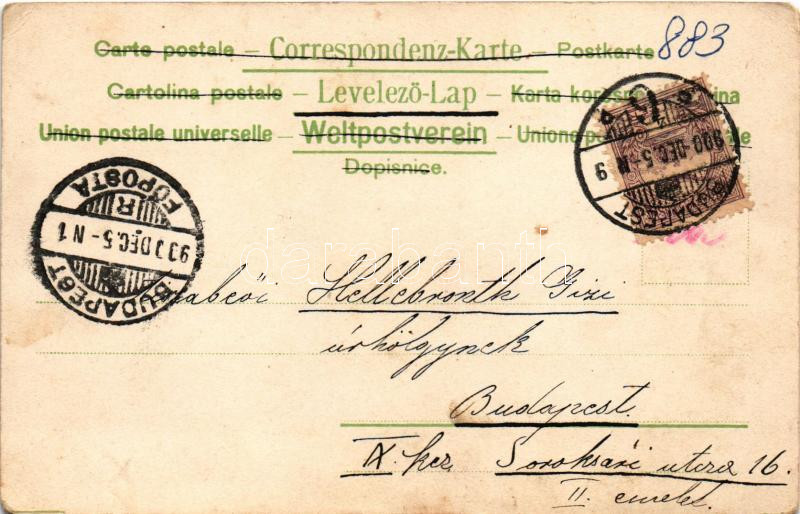 883
Carte postale – Correspondenz-Karte – Postkarte
Cartolina postale – Levelező-Lap – Karta korespondencyjna
Union postale universelle – Weltpostverein – Unione postale
Dopisnice.
BUDAPEST
900 DEC. 5 - N
9
BUDAPEST
900 DEC. 5 - N 1
R
FŐPOSTA
darabanth
Hellebronth Gizi
úrhölgynek
Budapest.
IX. ker. Soroksári utcza 16.
II. emelet.